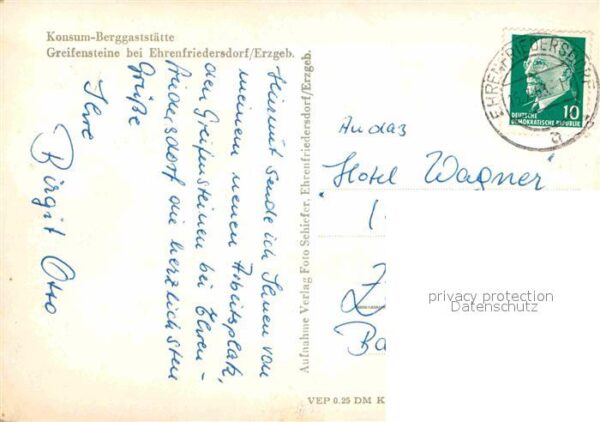 Konsum-Berggaststätte
Greifensteine bei Ehrenfriedersdorf/Erzgeb.
Hiermit sende ich Ihnen von
meinem neuen Arbeitsplatz,
den Greifensteinen bei Ehren-
friedersdorf die herzlichsten
Grüße
Ihre
Birgit Otto
Aufnahme Verlag Foto Schiefer, Ehrenfriedersdorf/Erzgeb.
VEP 0.25 DM K
EHRENFRIEDERSDORF
a
10
DEUTSCHE
DEMOKRATISCHE REPUBLIK
An das
"Hotel Wagner"
Ba
privacy protection
Datenschutz